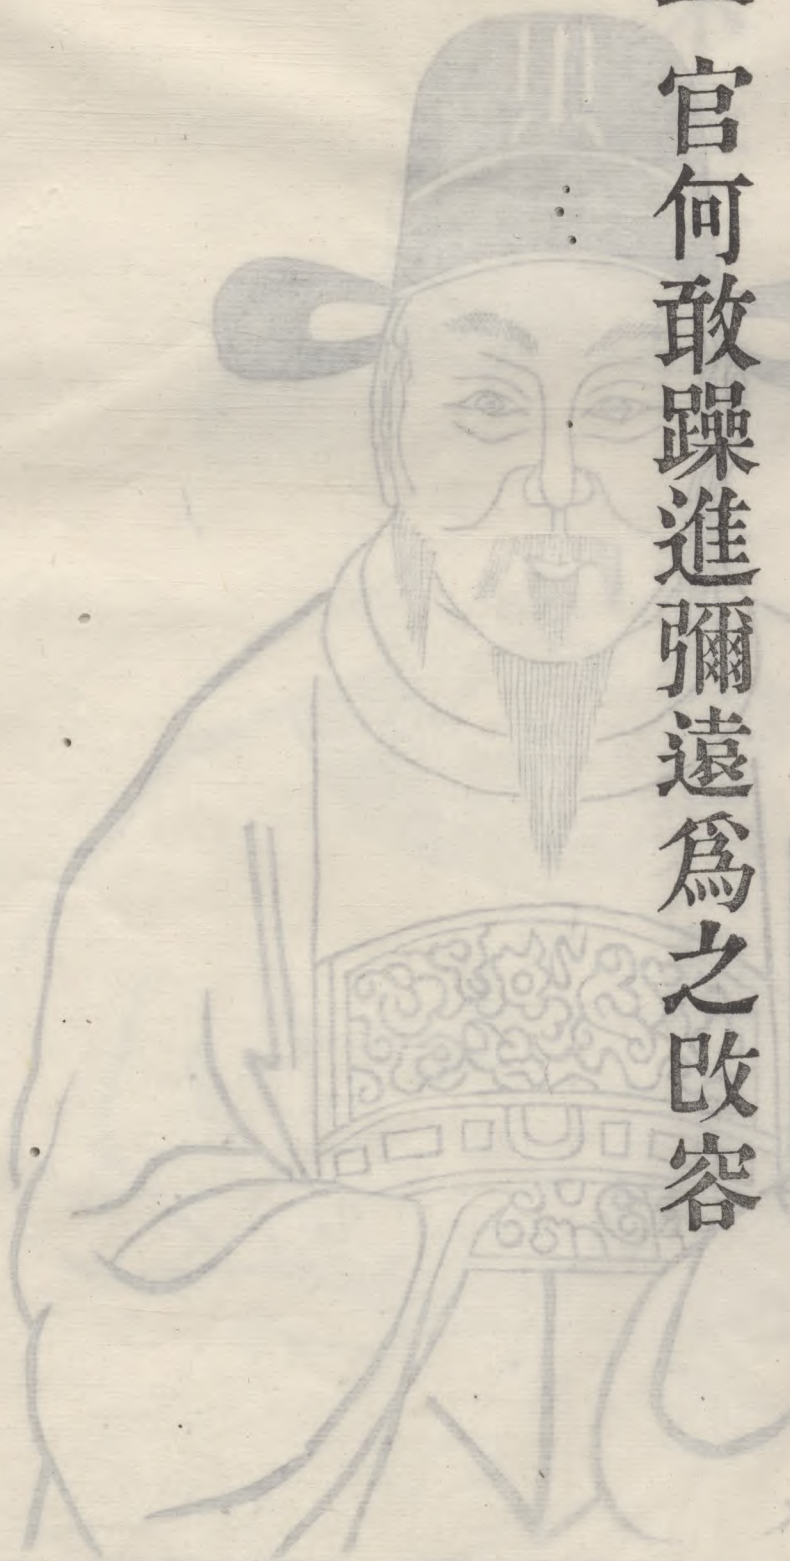 官何敢躁進彌遠爲之改容